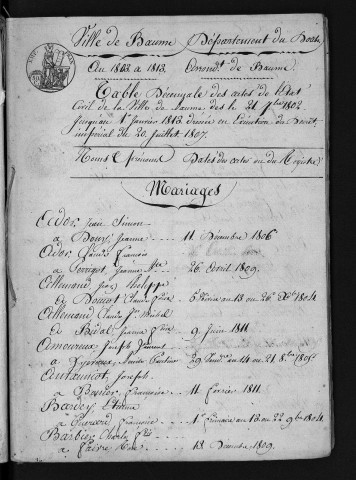 Ville de Baume Département du Doubs
An 1802 à 1813. Arrond.t de Baume.
Table Décennale des actes de l'Etat
Civil de la Ville de Baume dès le 21 7bre 1802
jusqu'au 1er janvier 1813 dressée en exécution du Décret
impérial du 20 juillet 1807.
Noms & prénoms Dates des actes ou du Registre
Mariages
Ador, Jean Simon
à Boury, Jeanne 11 Décembre 1806
Ador, Claude François
à Jeanne Mie 26 avril 1809.
Allemand, Philippe
à Doucot Claude 5 an 13 ou 26 Xbre 1804
Allemand Claude Fs Michel
à Bidal, Jeanne Fse 9 Juin 1811
Amoureux Joseph
à 29 an 14 ou 21 8bre 1805
Antauniot, Joseph
à Bander, Françoise 11 février 1811
Bardey, Etienne
à Françoise 1er frimaire an 13 ou 22 9bre 1804
Barbier, Charles Fis
à Faivre 13 Décembre 1809.